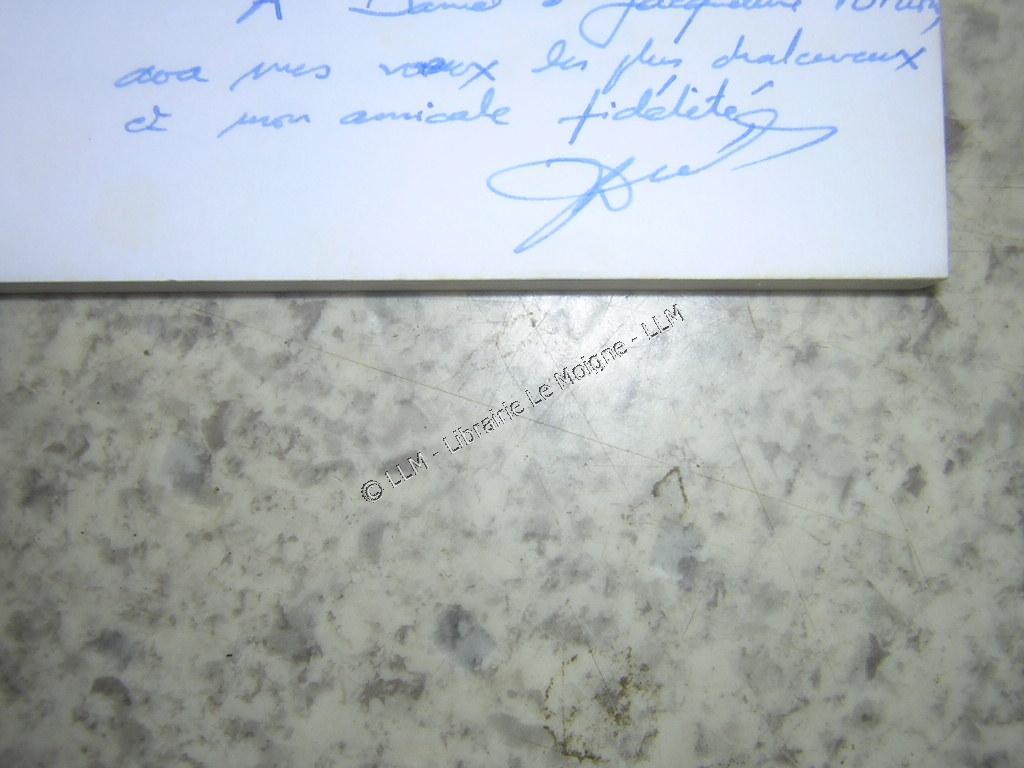 A Daniel & Jacqueline
avec mes voeux les plus chaleureux
et mon amicale fidélité
© LLM - Librairie Le Moigne - LLM